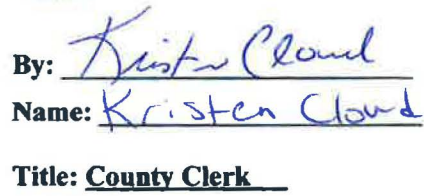 By: Kristen Cloud
Name: Kristen Cloud
Title: County Clerk